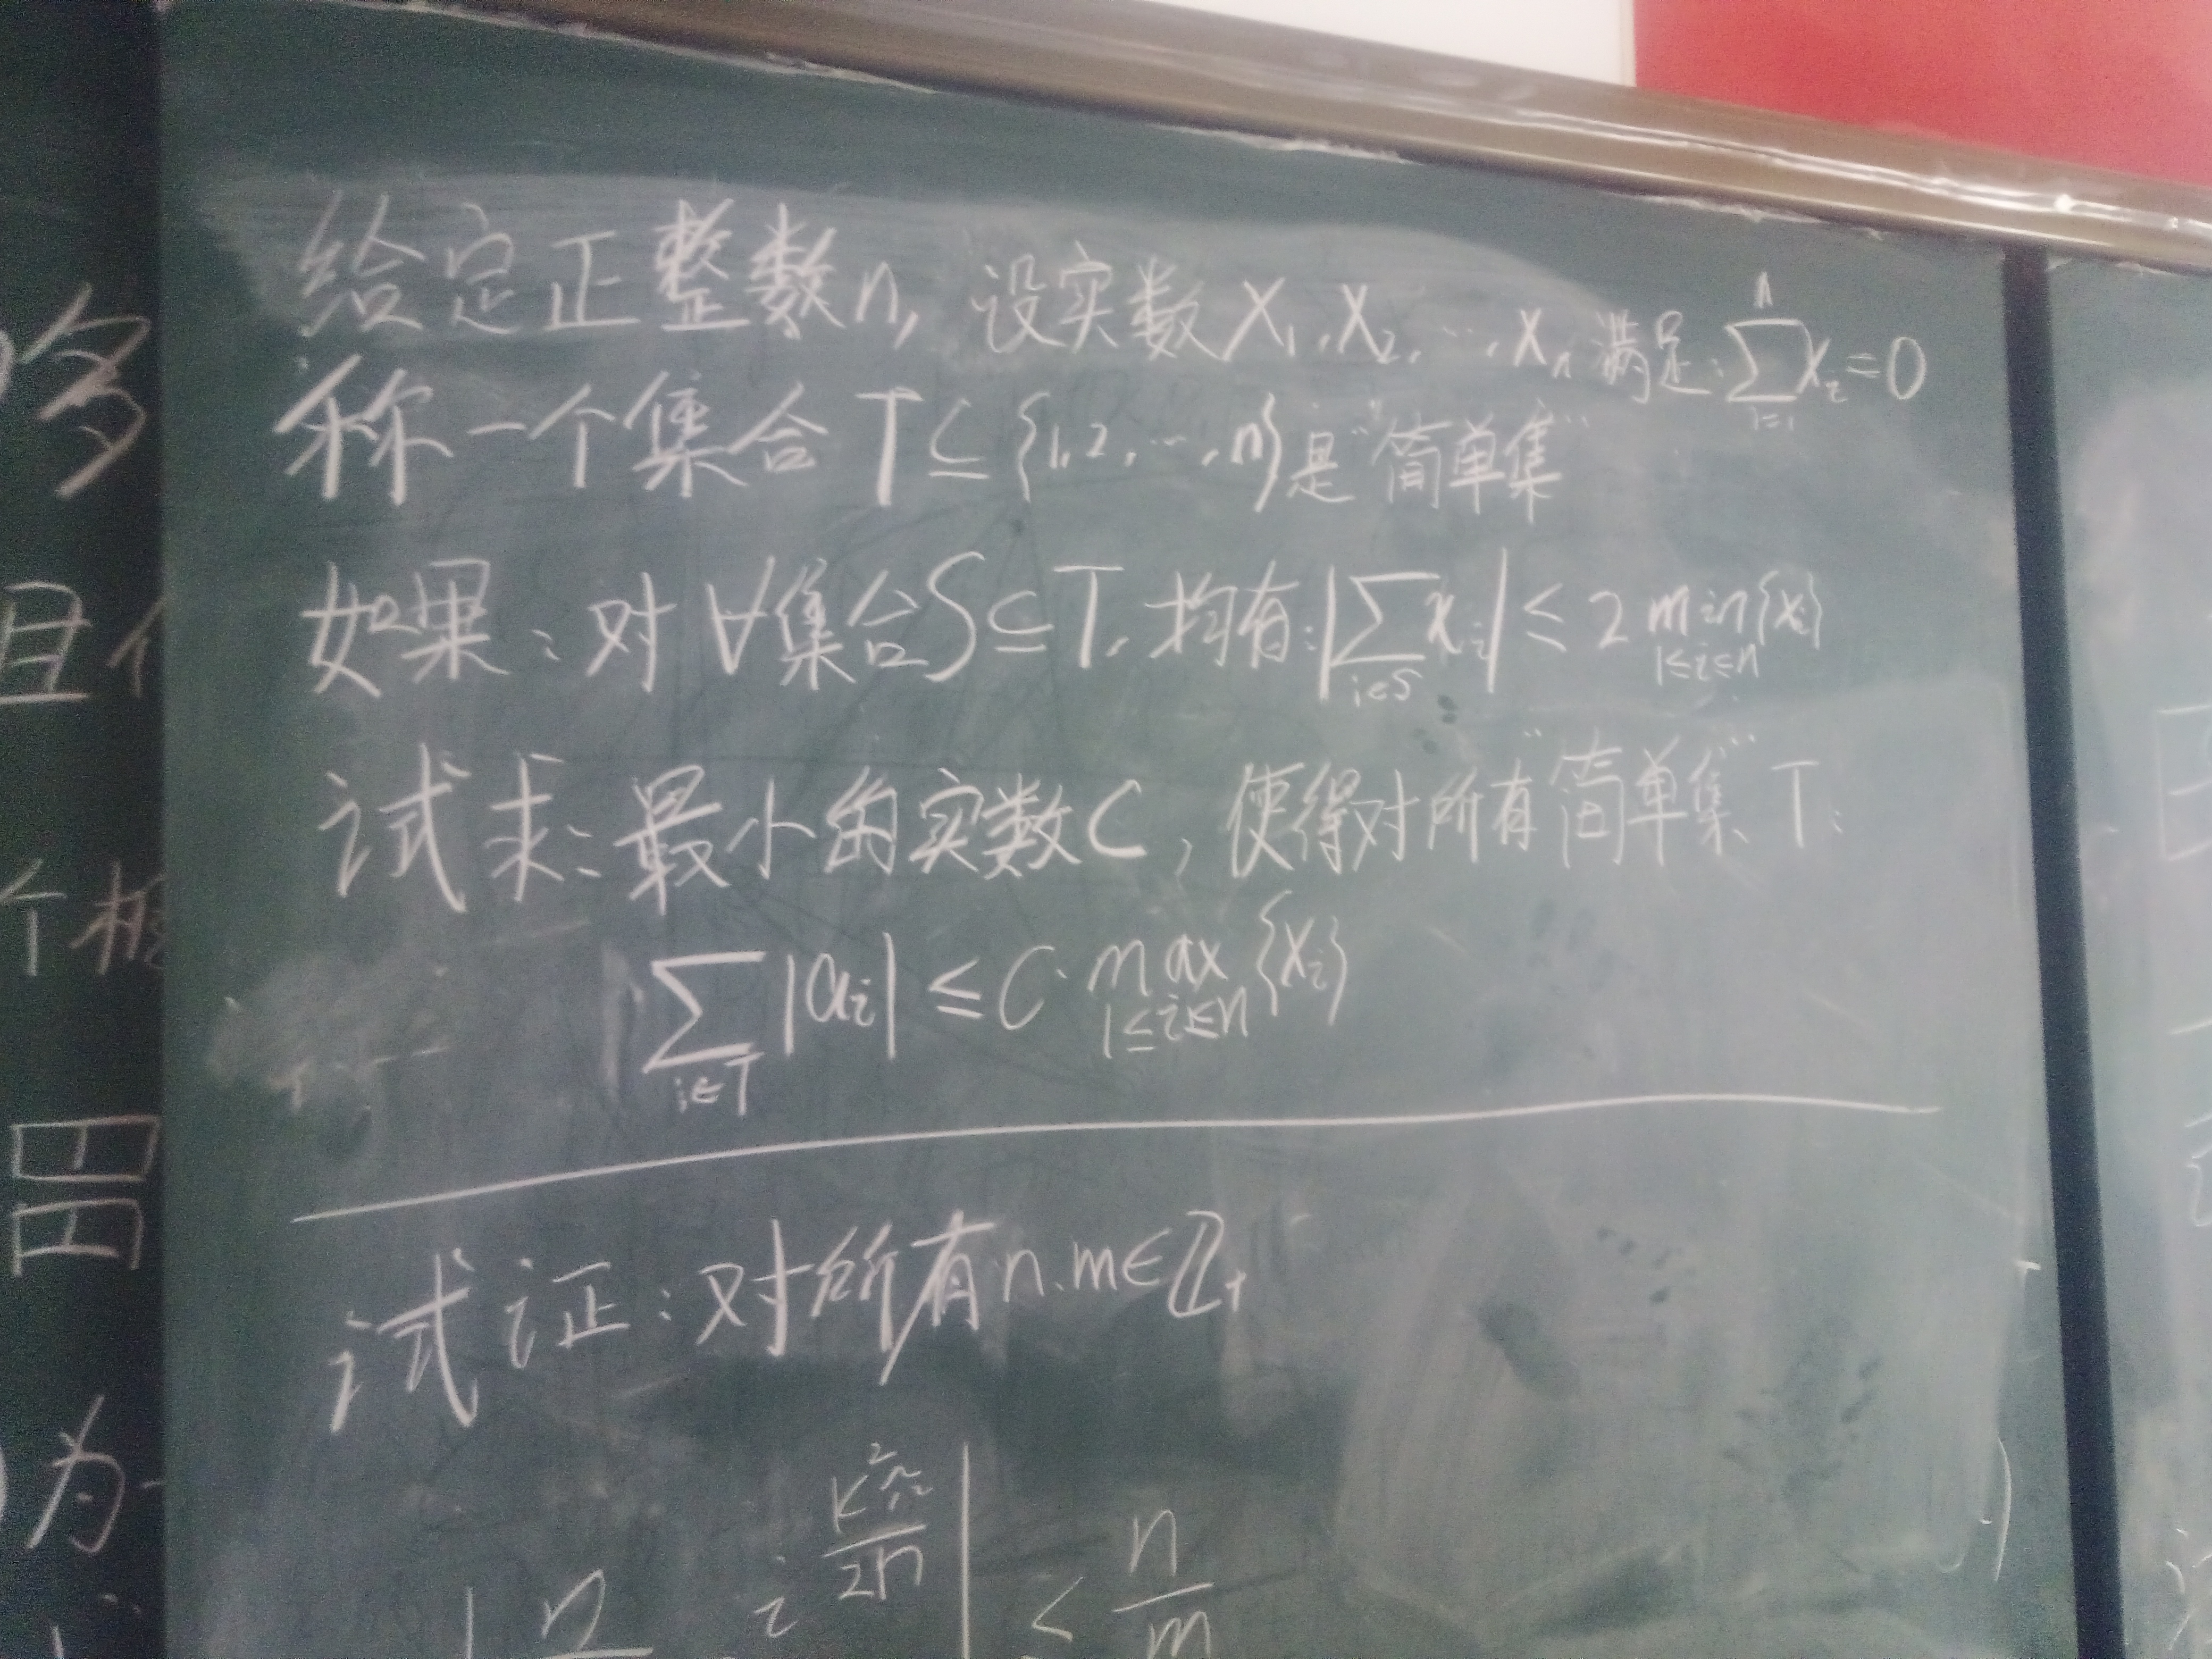 给定正整数n, 设实数 x₁,x₂,…,xₙ 满足: \sum_{i=1}^{n} x_i = 0
称一个集合 T ⊆ {1,2,…,n} 是“简单集”
如果: 对∀集合S⊆T, 均有: |\sum_{i∈S} x_i| ≤ 2 \min_{1≤i≤n}{x_i}
试求: 最小的实数C, 使得对所有“简单集”T:
\sum_{i∈T} |a_i| ≤ C·\max_{1≤i≤n}{x_i}
试证: 对所有n.m∈ℤ₊
n
< \frac{n}{m}
多
且
个
为